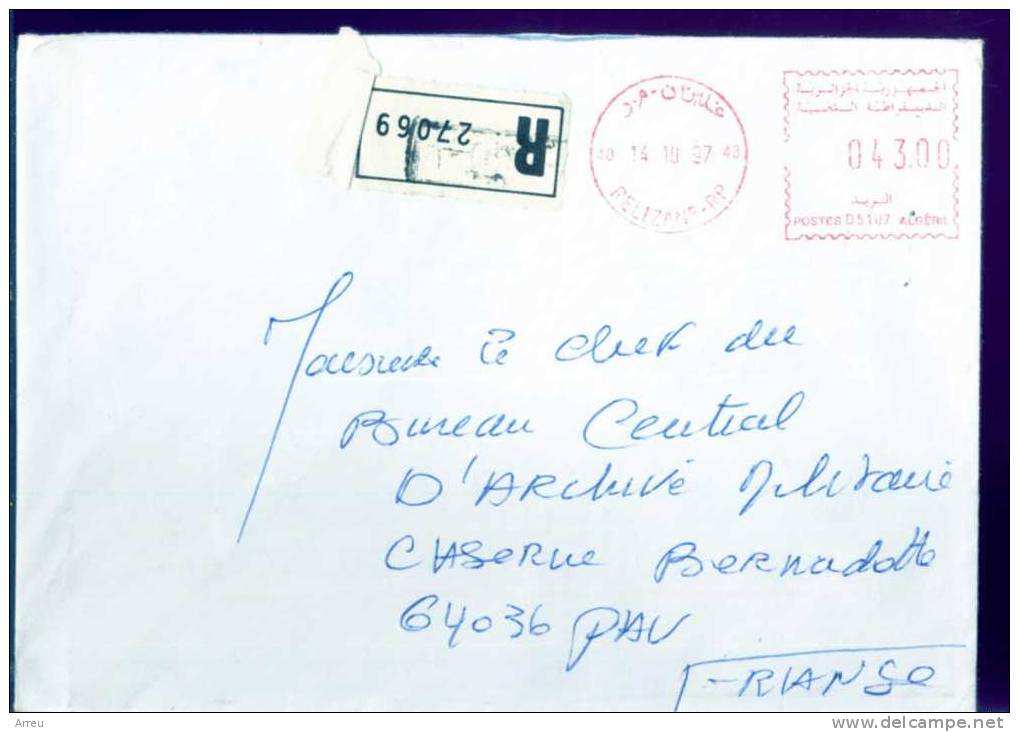 R
27069
غليزان - م.ر
48 14 10 97 48
RELIZANE-RP
الجمهورية الجزائرية
الديمقراطية الشعبية
043.00
البريد
POSTES D5107 ALGÉRIE
Monsieur le chef du
Bureau Central
D'ARchive Militaire
CASerne Bernadotte
64036 PAU
FRANSE
Arreu
www.delcampe.net